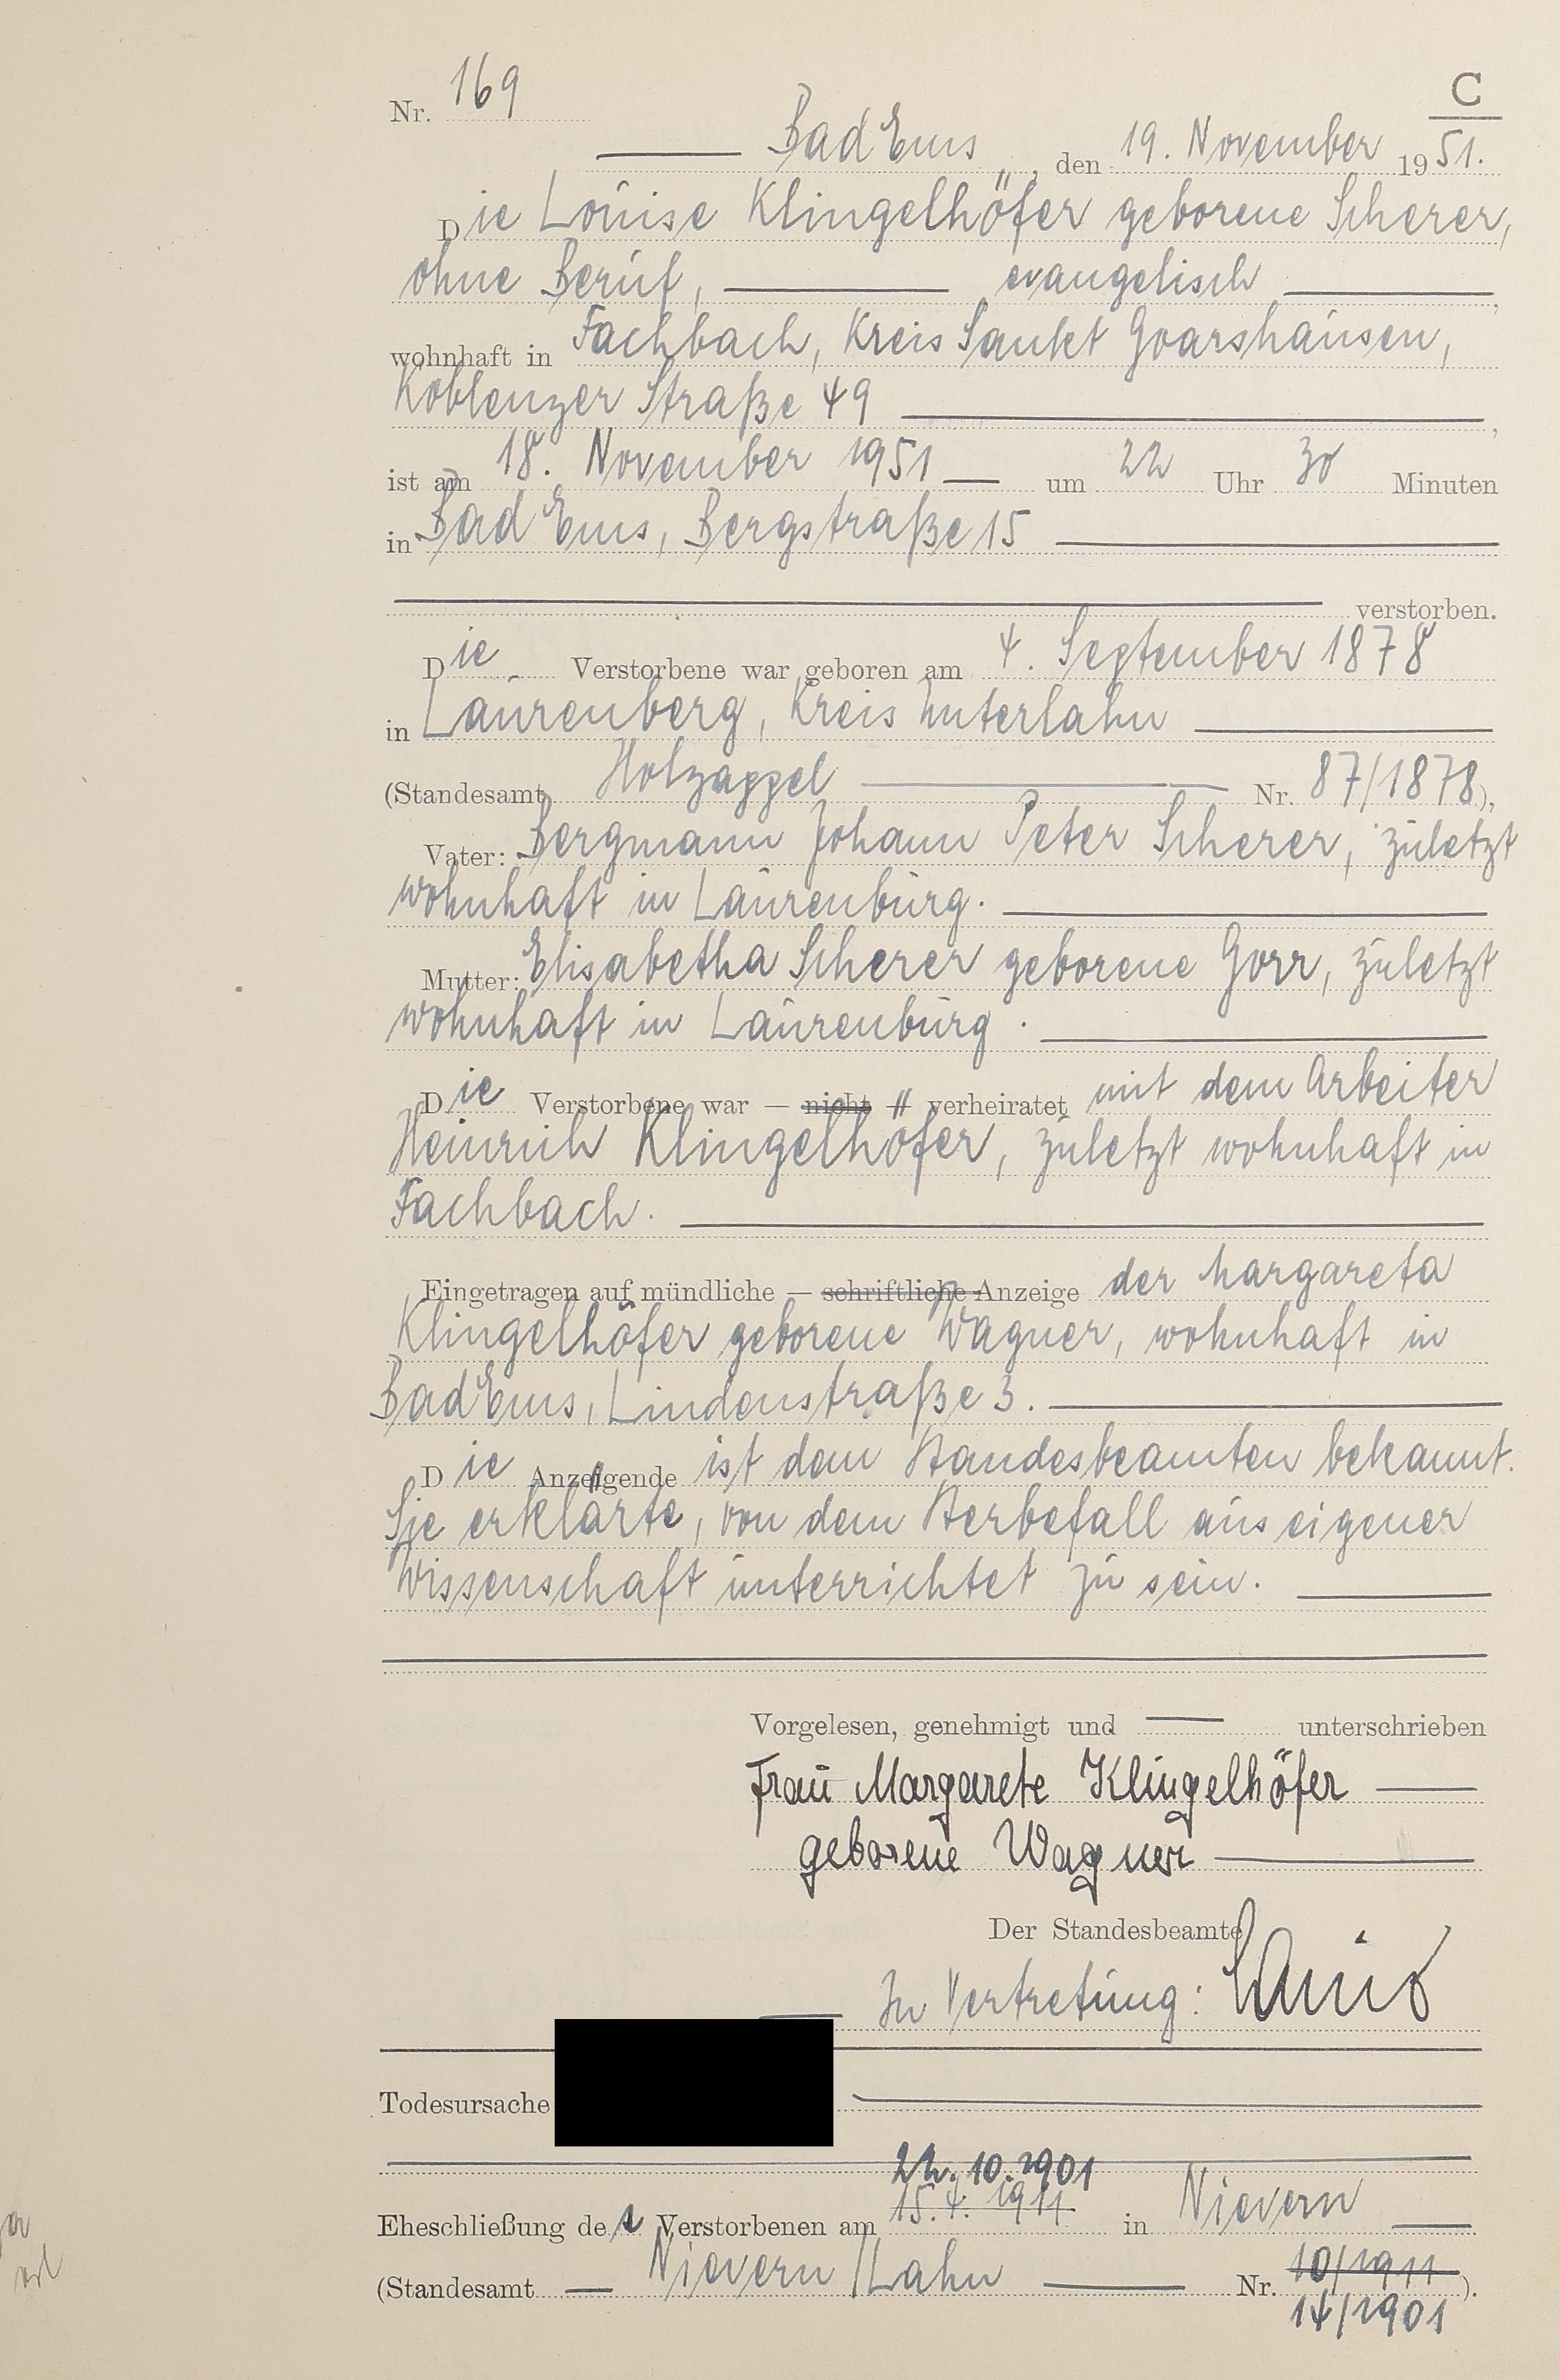 C
Nr. 169
Bad Ems, den 19. November 1951.
Die Louise Klingelhöfer geborene Scherer,
ohne Beruf, evangelisch,
wohnhaft in Fachbach, Kreis Sankt Goarshausen,
Koblenzer Straße 49,
ist am 18. November 1951 um 22 Uhr 30 Minuten
in Bad Ems, Bergstraße 15
verstorben.
Die Verstorbene war geboren am 4. September 1878
in Laurenberg, Kreis Unterlahn
(Standesamt Holzappel Nr. 87/1878),
Vater: Bergmann Johann Peter Scherer, zuletzt
wohnhaft in Laurenburg.
Mutter: Elisabetha Scherer geborene Gorr, zuletzt
wohnhaft in Laurenburg.
Die Verstorbene war — nicht — verheiratet mit dem Arbeiter
Heinrich Klingelhöfer, zuletzt wohnhaft in
Fachbach.
Eingetragen auf mündliche — schriftliche Anzeige der Margareta
Klingelhöfer geborene Wagner, wohnhaft in
Bad Ems, Lindenstraße 3.
Die Anzeigende ist dem Standesbeamten bekannt.
Sie erklärte, von dem Sterbefall aus eigener
Wissenschaft unterrichtet zu sein.
Vorgelesen, genehmigt und unterschrieben
Frau Margarete Klingelhöfer
geborene Wagner
Der Standesbeamte
In Vertretung:
Todesursache
22.10.1901
Eheschließung der Verstorbenen am 15.4.1911 in Nievern
(Standesamt Nievern/Lahn Nr. 10/1911).
14/1901